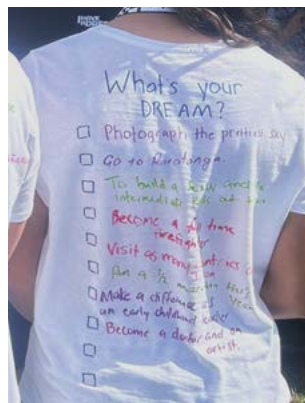 What's your
DREAM?
Photograph the prettiest sky
Go to Rarotonga.
To build a and
intermediate kids out
Become a full time
firefighter
Visit as many countries as
Run a 1/2 marathon this year
Make a difference as
an early childhood
Become a doctor and an
artist.